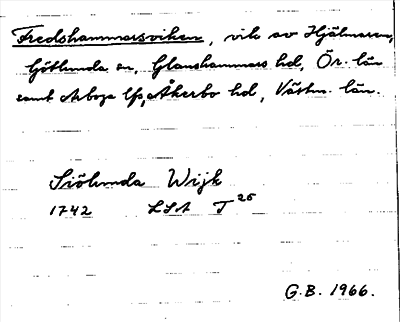 Fredshammarsviken, vik av Hjälmaren,
Götlunda sn, Glanshammars hd, Ör. län
samt Arboga lfs, Åkerbo hd, Västm. län.
Siölunda Wijk
1742 LSA T 26
G.B. 1966.